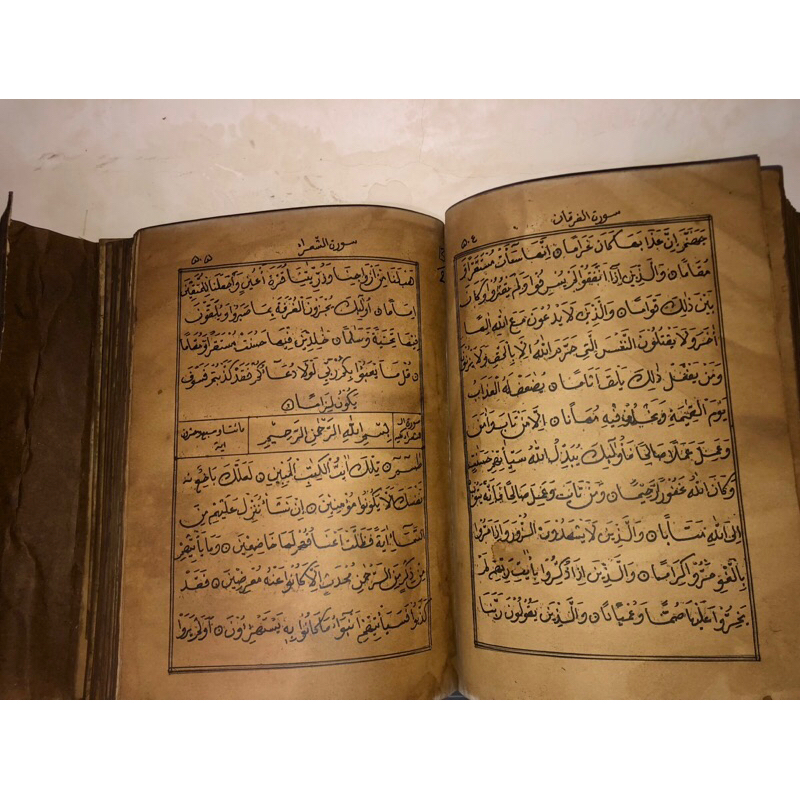 سورة الفرقان ٥٠٤
جهنم ان عذابها كان غراما ○ انها ساءت مستقرا و
مقاما ○ والذين اذا انفقوا لم يسرفوا ولم يقتروا وكان
بين ذلك قواما ○ والذين لا يدعون مع الله الها
اخر ولا يقتلون النفس التي حرم الله الا بالحق ولا يزنون
ومن يفعل ذلك يلق اثاما ○ يضعف له العذاب
يوم القيمة ويخلد فيه مهانا ○ الا من تاب وامن
وعمل عملا صالحا فاولئك يبدل الله سياتهم حسنت
وكان الله غفورا رحيما ○ ومن تاب وعمل صالحا فانه يتوب
الى الله متابا ○ والذين لا يشهدون الزور واذا مروا
باللغو مروا كراما ○ والذين اذا ذكروا بايت ربهم لم
يخروا عليها صما وعميانا ○ والذين يقولون ربنا
سورة الشعراء ٥٠٥
هب لنا من ازواجنا وذريتنا قرة اعين واجعلنا للمتقين
اماما ○ اولئك يجزون الغرفة بما صبروا ويلقون
فيها تحية وسلما ○ خلدين فيها حسنت مستقرا ومقاما
○ قل ما يعبؤا بكم ربي لولا دعاؤكم فقد كذبتم فسوف
يكون لزاما ○
بسم الله الرحمن الرحيم
طسم ○ تلك ايت الكتب المبين ○ لعلك باخع
نفسك الا يكونوا مؤمنين ○ ان نشا ننزل عليهم من
السماء اية فظلت اعناقهم لها خاضعين ○ وما ياتيهم
من ذكر من الرحمن محدث الا كانوا عنه معرضين ○ فقد
كذبوا فسياتيهم انبؤا ما كانوا به يستهزؤن ○ اولم يروا